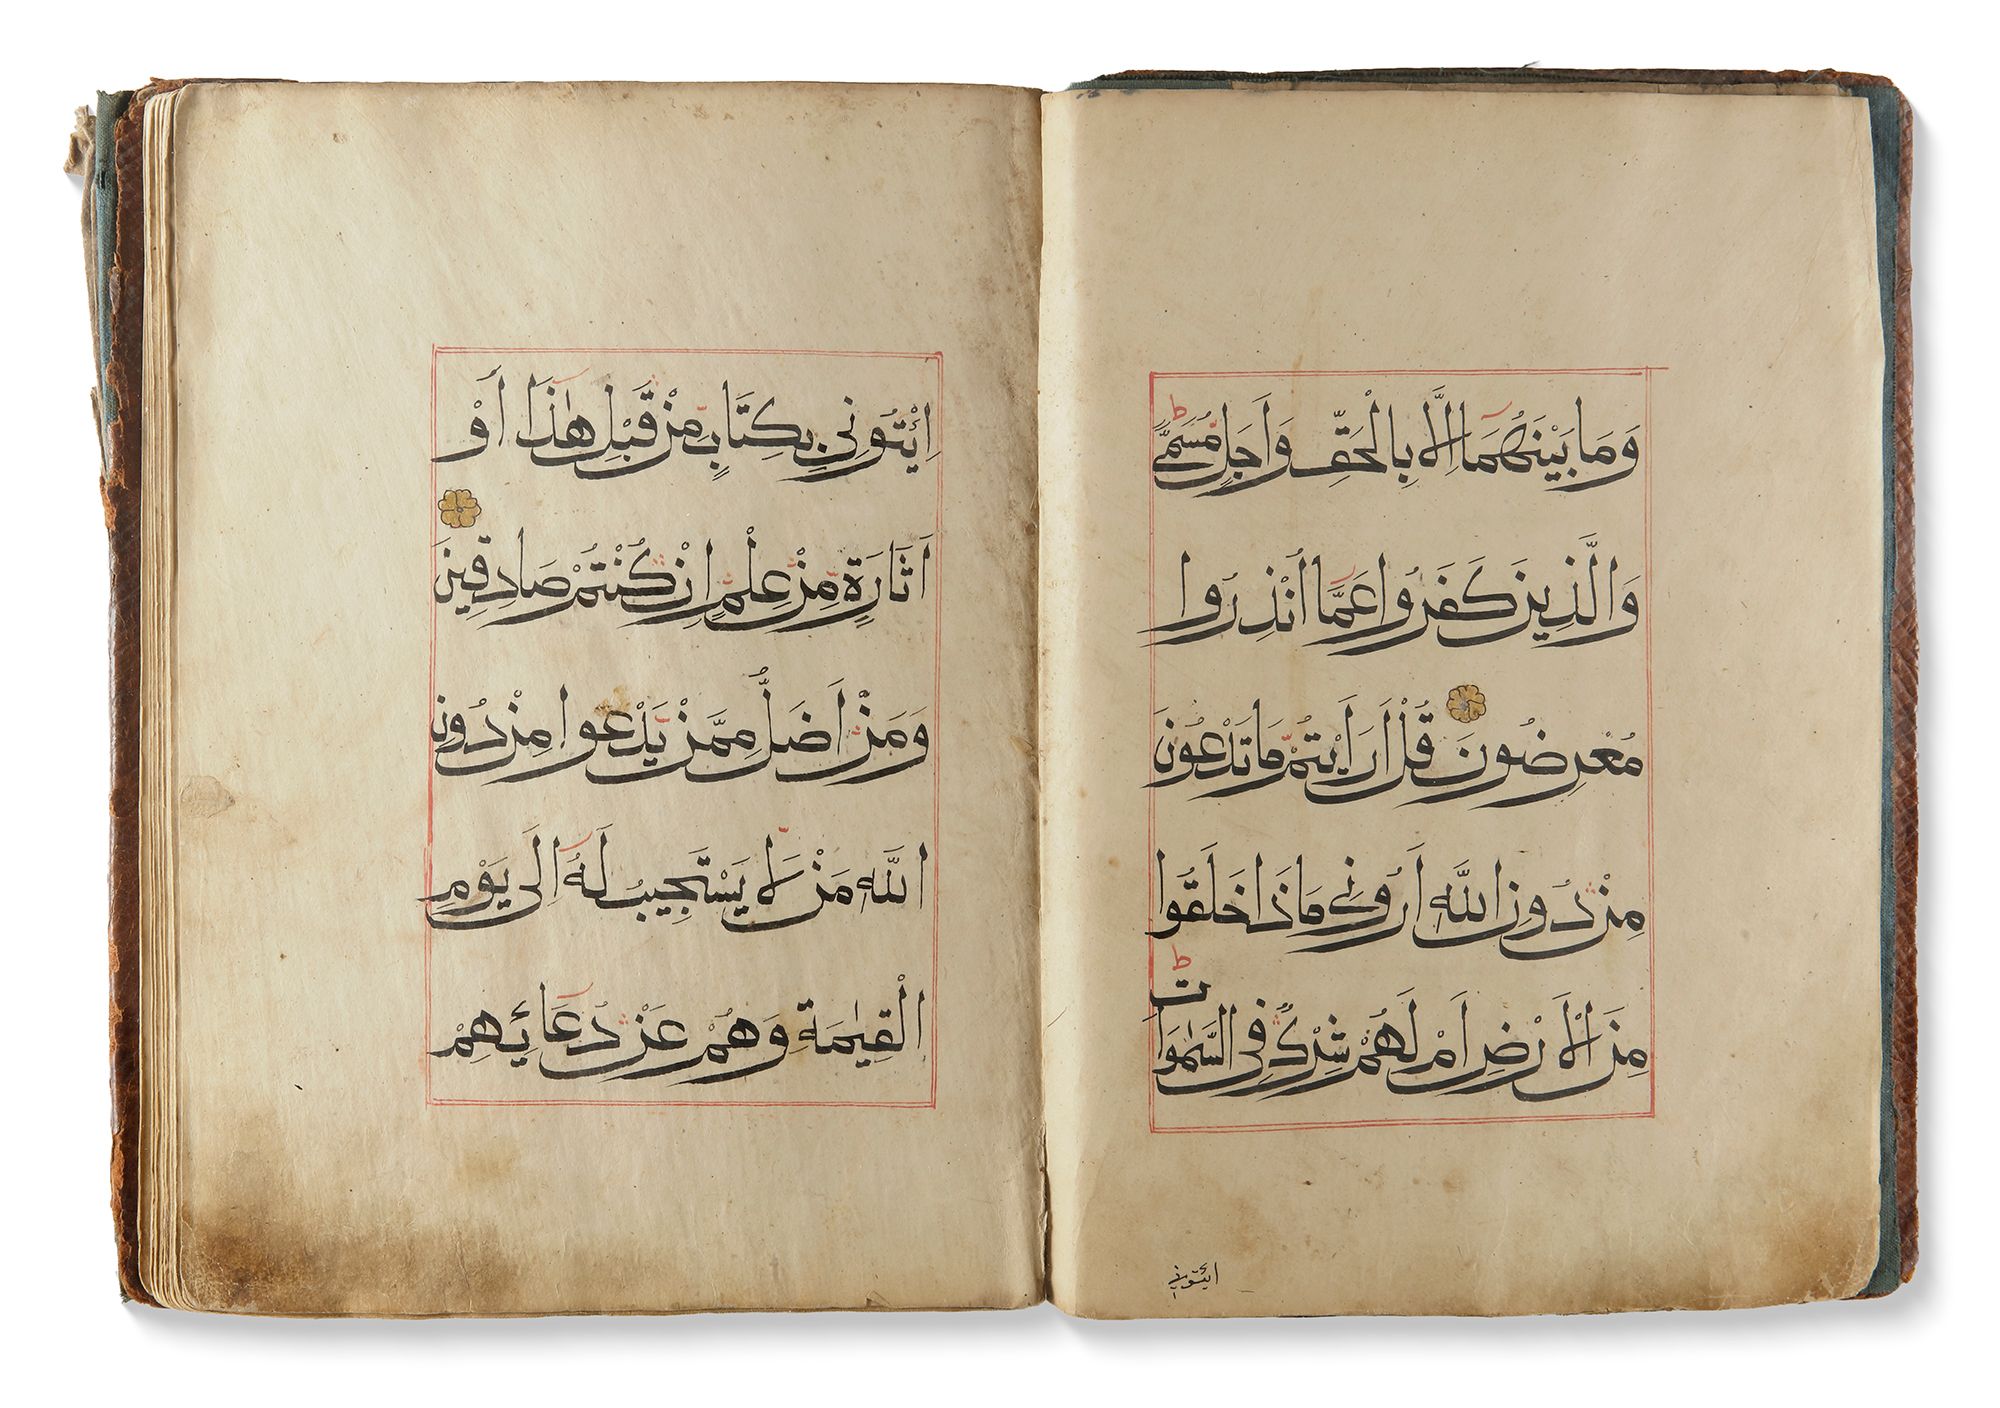 وَمَا بَيْنَهُمَا اِلَّا بِالْحَقِّ وَاَجَلٍ مُّسَمًّى ط
وَالَّذِينَ كَفَرُوا عَمَّا اُنْذِرُوا
مُعْرِضُونَ قُلْ اَرَاَيْتُمْ مَّا تَدْعُونَ
مِنْ دُونِ اللّٰهِ اَرُونِي مَاذَا خَلَقُوا
مِنَ الْاَرْضِ اَمْ لَهُمْ شِرْكٌ فِي السَّمٰوَاتِ ط
ايئتوني
اِيْتُونِي بِكِتَابٍ مِّنْ قَبْلِ هٰذَا اَوْ
اَثَارَةٍ مِّنْ عِلْمٍ اِنْ كُنْتُمْ صَادِقِينَ
وَمَنْ اَضَلُّ مِمَّنْ يَّدْعُوا مِنْ دُونِ
اللّٰهِ مَنْ لَّا يَسْتَجِيبُ لَهُ اِلَى يَوْمِ
الْقِيٰمَةِ وَهُمْ عَنْ دُعَائِهِمْ